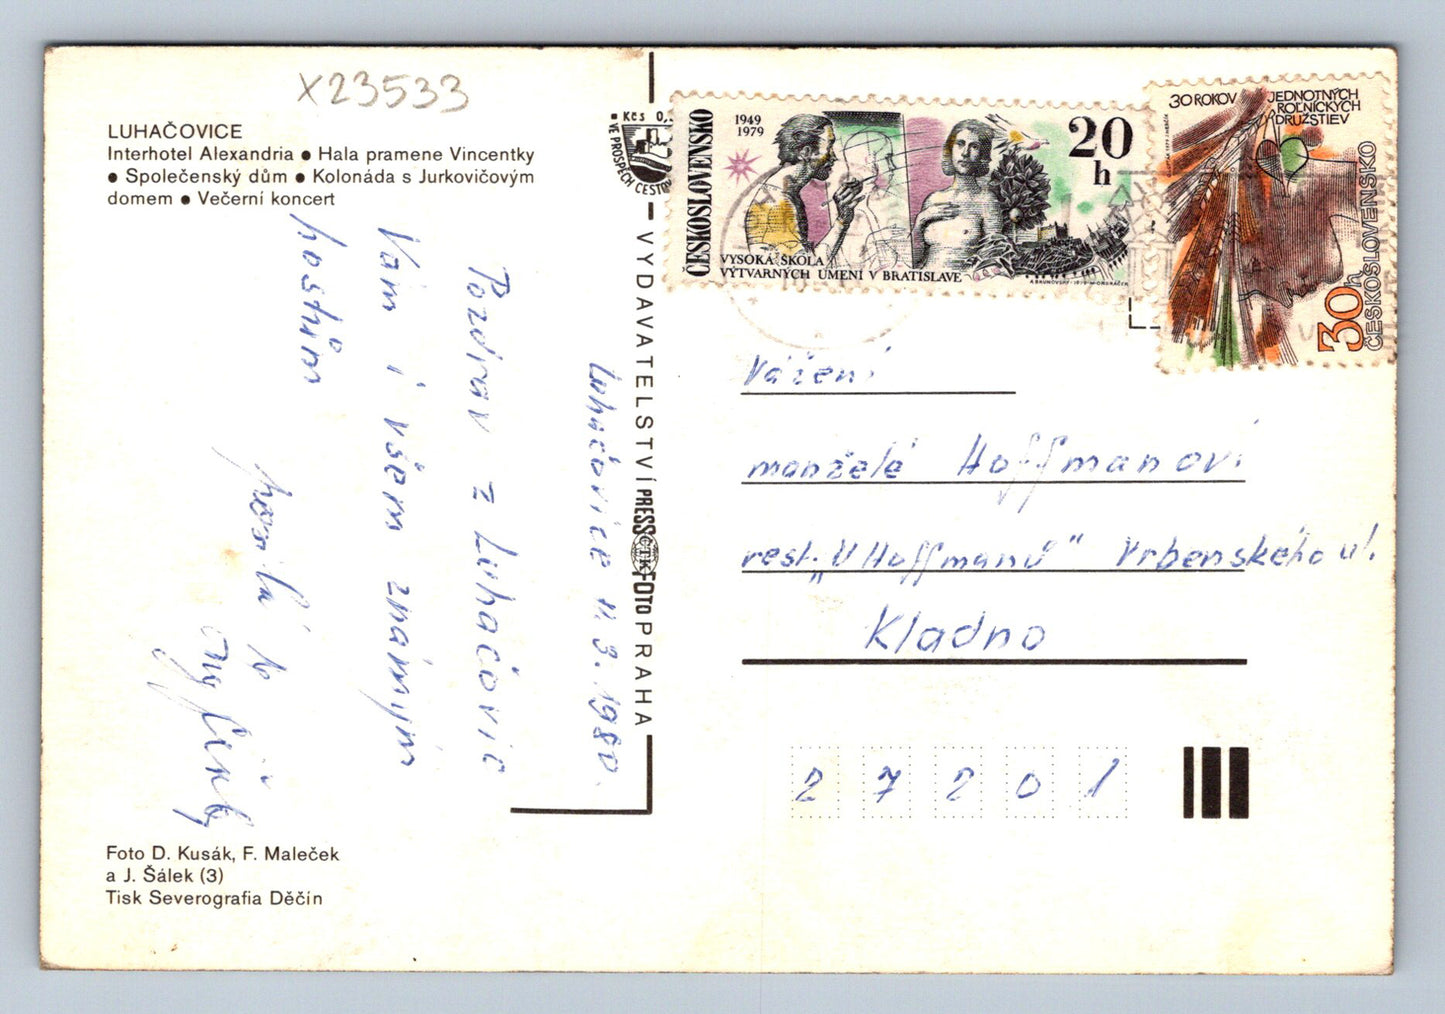 X23533
LUHAČOVICE
Interhotel Alexandria ● Hala pramene Vincentky
● Společenský dům ● Kolonáda s Jurkovičovým
domem ● Večerní koncert
Luhačovice 11.3.1980.
Pozdrav z Luhačovic
Vám i všem známým
hostům
Foto D. Kusák, F. Maleček
a J. Šálek (3)
Tisk Severografia Děčín
Kčs 0,
VE PROSPĚCH CESTOV
VYDAVATELSTVÍ PRESSFOTO PRAHA
ČTK
ČESKOSLOVENSKO
1949
1979
20
h
VYSOKÁ ŠKOLA
VÝTVARNÝCH UMENÍ V BRATISLAVE
A.BRUNOVSKÝ-1979-M.ONDRÁČEK
30 ROKOV JEDNOTNÝCH
ROĽNÍCKYCH
DRUŽSTIEV
30h
ČESKOSLOVENSKO
Vážení
manželé Hoffmanovi
rest. „U Hoffmanů" Vrbenského ul.
Kladno
27201